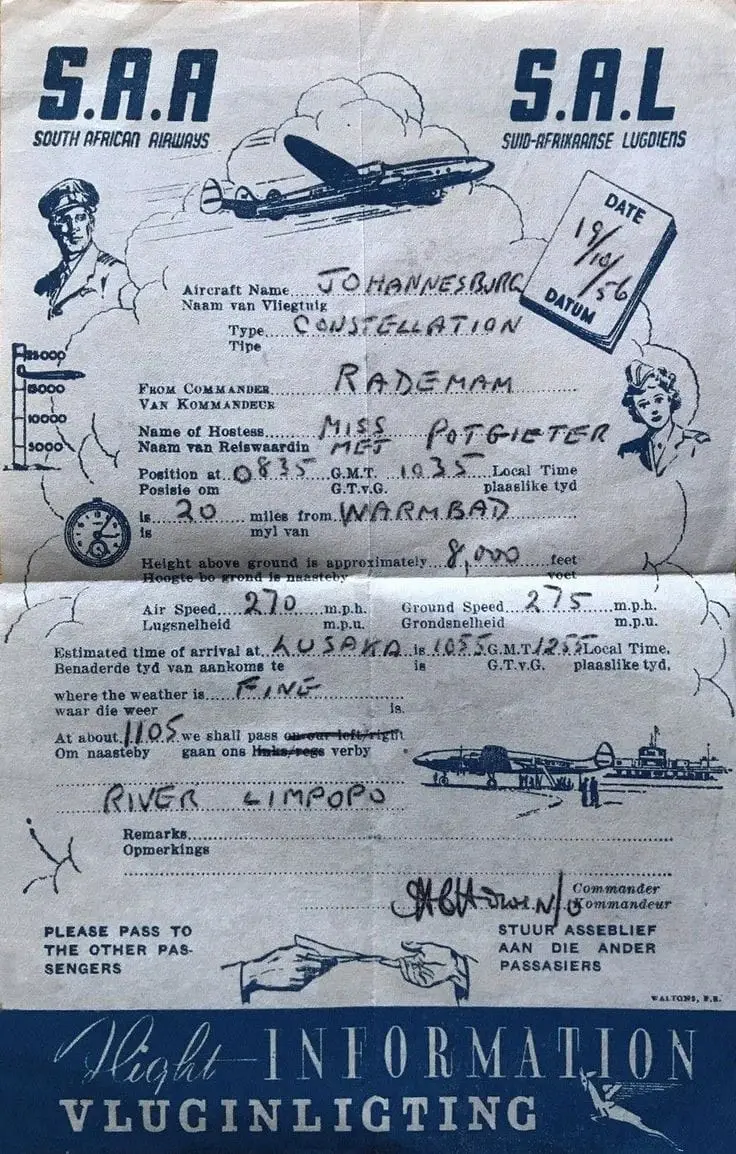 S.A.A S.A.L
SOUTH AFRICAN AIRWAYS SUID-AFRIKAANSE LUGDIENS
DATE
19/10/56
DATUM
Aircraft Name JOHANNESBURG
Naam van Vliegtuig
Type CONSTELLATION
Tipe
FROM COMMANDER RADEMAM
VAN KOMMANDEUR
15000
10000
5000
Name of Hostess MISS POTGIETER
Naam van Reiswaardin MEJ
Position at 0835 G.M.T. 1035 Local Time
Posisie om G.T.v.G. plaaslike tyd
is 20 miles from WARMBAD
is myl van
Height above ground is approximately 8,000 feet
Hoogte bo grond is naasteby voet
Air Speed 270 m.p.h. Ground Speed 275 m.p.h.
Lugsnelheid m.p.u. Grondsnelheid m.p.u.
Estimated time of arrival at LUSAKA is 1055 G.M.T. 1255 Local Time,
Benaderde tyd van aankoms te is G.T.v.G. plaaslike tyd,
where the weather is FINE
waar die weer is.
At about 1105 we shall pass on our left/right
Om naasteby gaan ons links/regs verby
RIVER LIMPOPO
Remarks
Opmerkings
N/O Commander
Kommandeur
PLEASE PASS TO
THE OTHER PAS-
SENGERS
STUUR ASSEBLIEF
AAN DIE ANDER
PASSASIERS
WALTONS, P.E.
Flight INFORMATION
VLUGINLIGTING